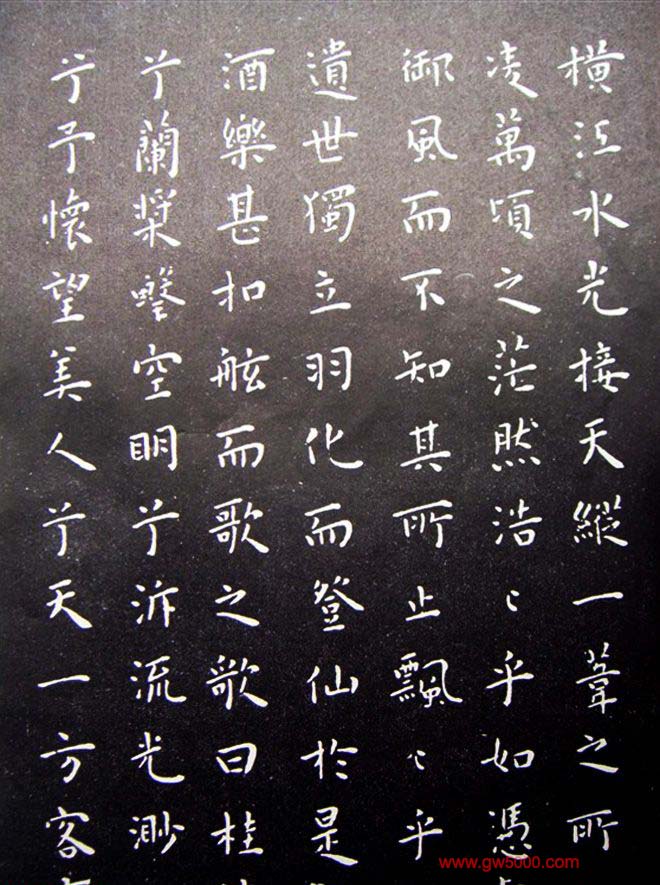 橫江水光接天縱一葦之所
凌萬頃之茫然浩〻乎如憑
御風而不知其所止飄〻乎
遺世獨立羽化而登仙於是
酒樂甚扣舷而歌之歌曰桂
兮蘭槳擊空明兮泝流光渺
兮予懷望美人兮天一方客
www.gw5000.com